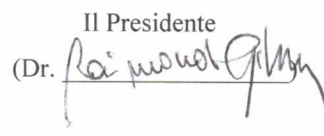 Il Presidente
(Dr. Raimond